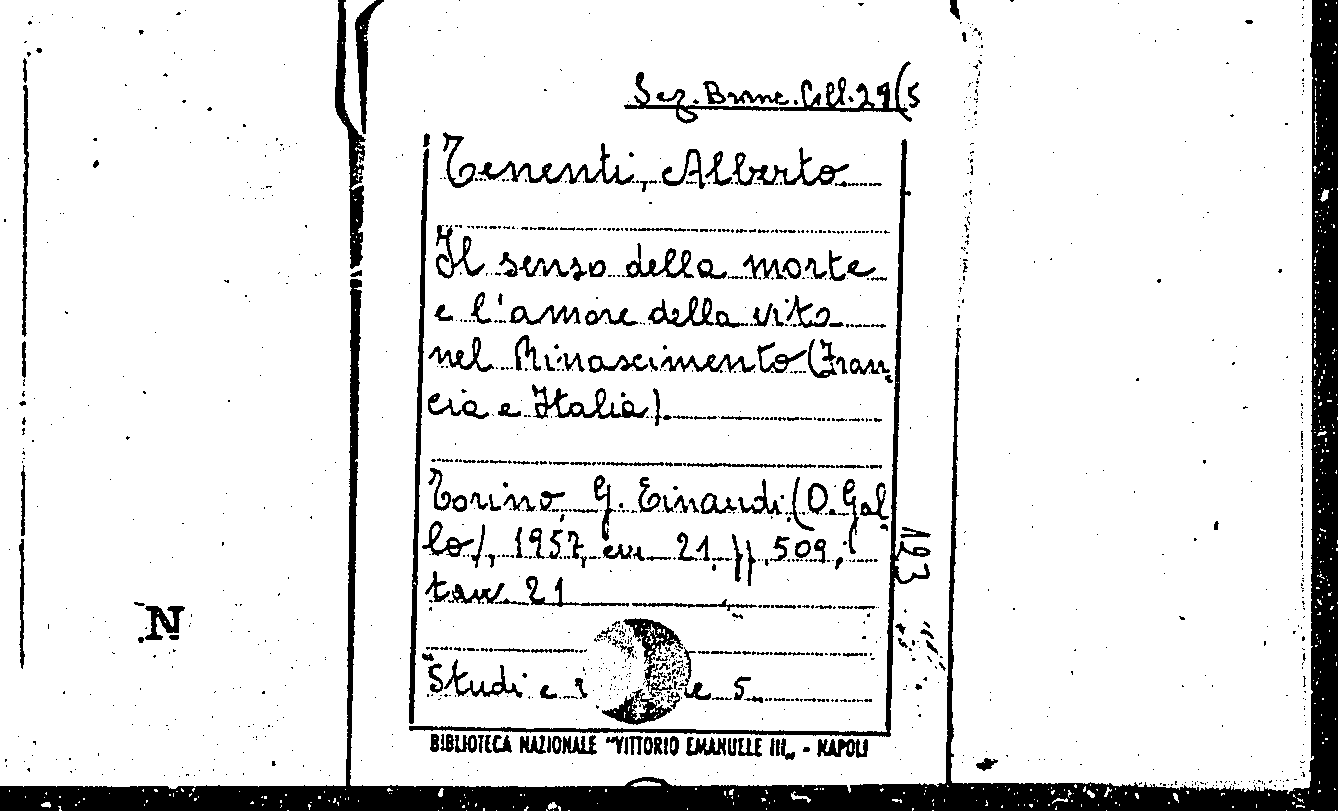 Sez. Branc. Coll. 29(5
Tenenti, Alberto
Il senso della morte
e l'amore della vita
nel Rinascimento (Fran-
cia e Italia).
Torino, G. Einaudi (D. Gal-
lo), 1957, cm. 21, pp. 509,
tav. 21
193
N
Studi e e 5.
BIBLIOTECA NAZIONALE "VITTORIO EMANUELE III„ - NAPOLI